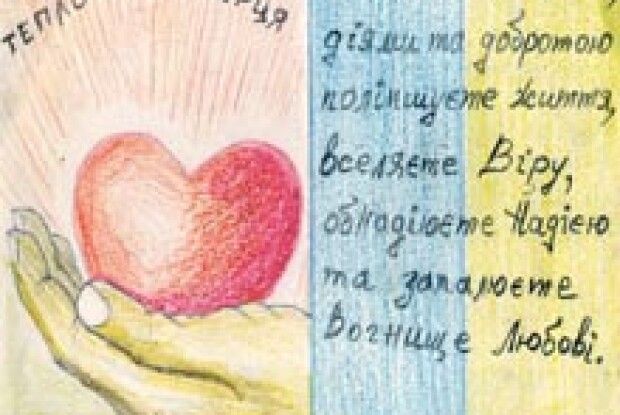 ТЕПЛО
діями та добротою
поліпшуєте життя,
вселяєте Віру,
обнадіюєте Надією
та запалюєте
Вогнище Любові.